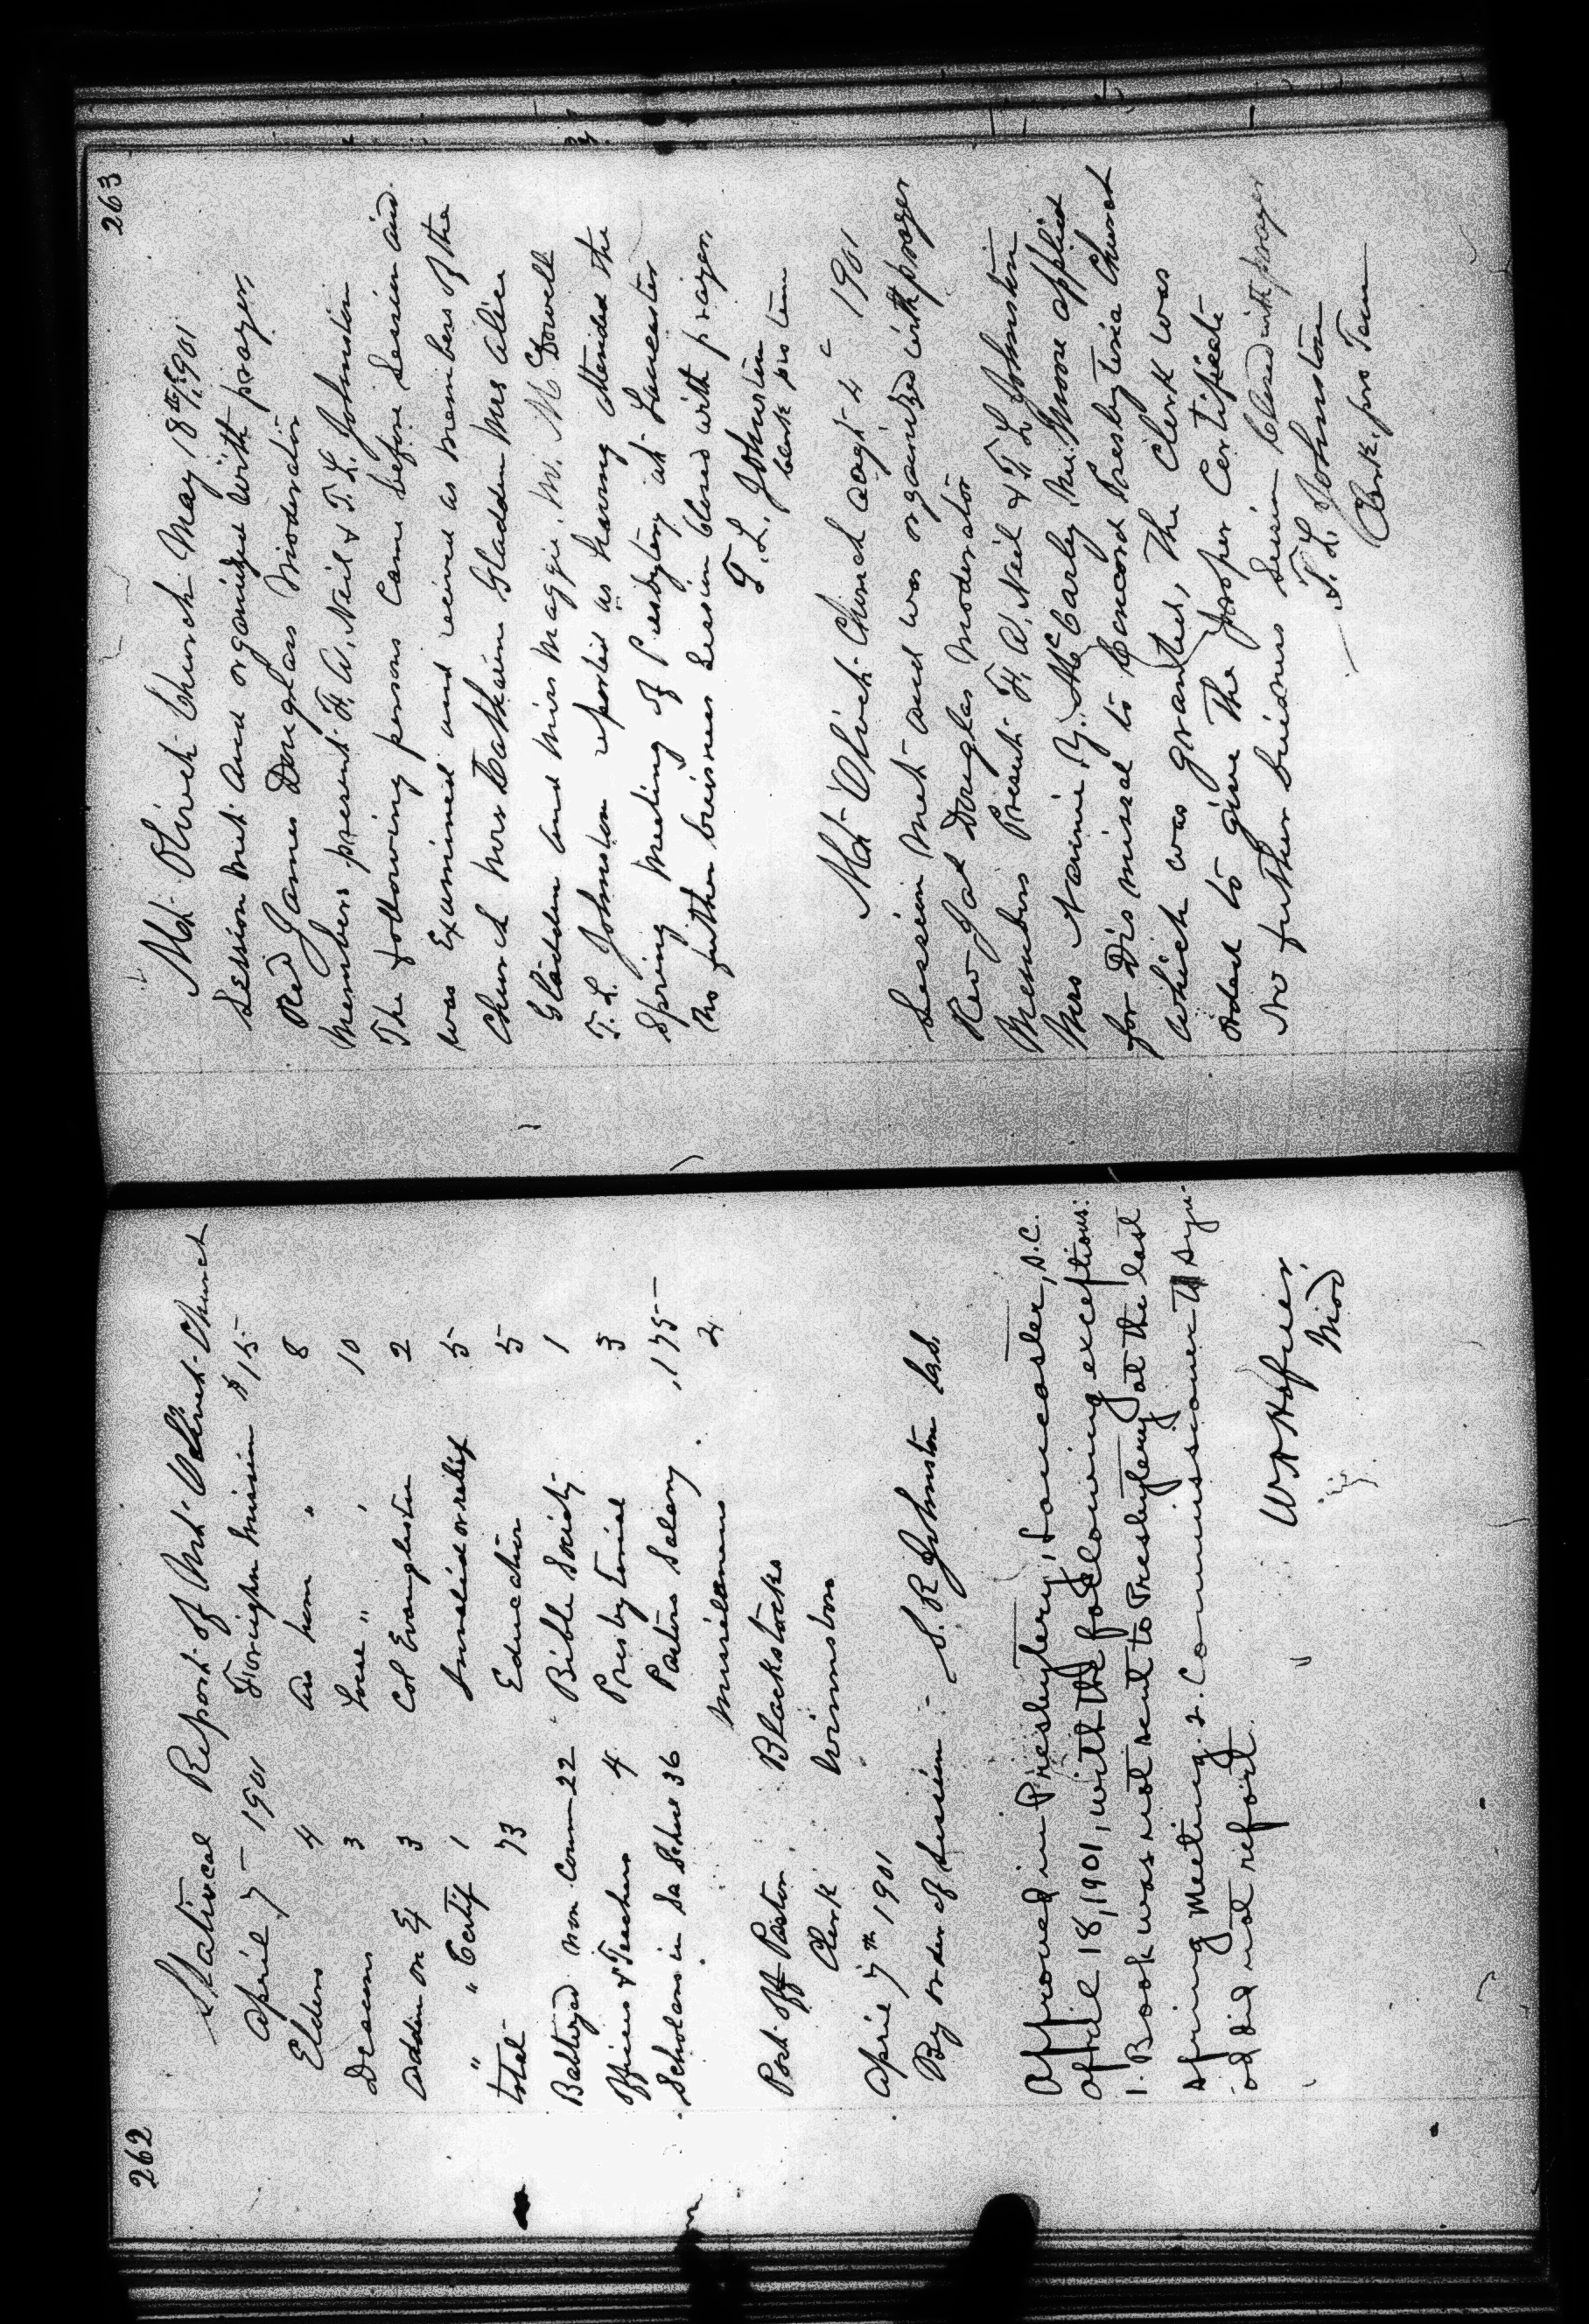 262
Statiscal Report of Mt. Olivet Church
April 7 – 1901 Foreign Mission $ 15
Elders 4 as hom " 8
Deacons 3 Local " " 10
Addin on Ex 3 Col Evanglistic 2
" " Certif 1 Invalid or relief 5
total 73 Education 5
Babtized non Comm 22 Bible Society 1
Officers & Teachers 4 Presbyterial 3
Scholars in Sa School 36 Pastors Salary 175–
Miscelaneous 2
Post off Pastor Blackstocks
Clerk Winnsboro
April 7th 1901
By order of Session – S. R. Johnston C.S.
Approved in Presbytery, Lancaster, S.C.
April 18, 1901, with the following exceptions:
1. Book was not sent to Presbytery at the last
Spring Meeting. 2. Commissioner to Syn-
od did not report.
W A Hafner,
Mod
263
Mt. Olivet Church May 18th/1901
Session met and organized with prayer,
Rev James Douglas Moderator
Members present H. A. Neil & T. L. Johnston
The following persons Came before Session and
was Examined and recieved as members of the
Church Mrs Catharine Gladden Mrs Alice
Gladden and Miss Maggie. M. McDowell
T. L. Johnston reported as having attended the
Spring Meeting of Presbytery at Lancaster
No further business Session closed with prayer,
T. L. Johnston
Clerk pro tem
Mt Olivet Church Aagt 4 1901
Session met and was organized with prayer
Rev Jas Douglas Moderator
Members Present H. A. Neil & T. L. Johnston
Mrs Nannie Y. McCarley Moore applied
for Dismissal to Concord Presbyteria Church
which was granted, the Clerk was
ordered to give The proper Certificate
No further business Session Closed with prayer
T. L. Johnston
Clerk. pro Tem